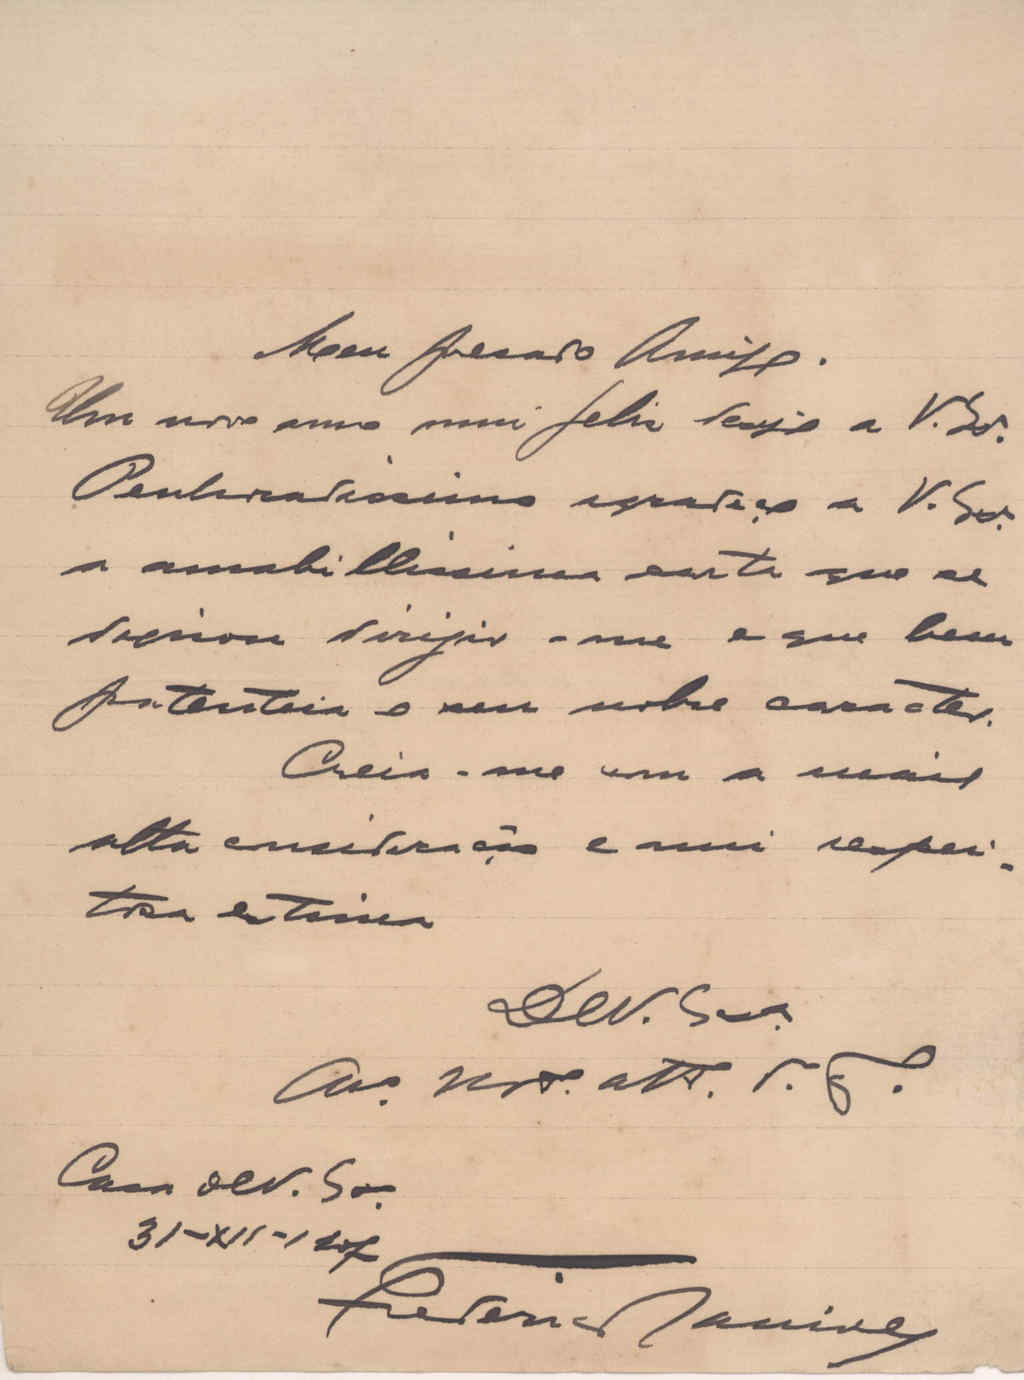 Meu presado Amigo.
Um novo anno mui feliz desejo a V. Sa.
Penhoradissimo agradeço a V. Sa.
a amabillissima carta que se
dignou dirigir-me e que bem
patenteia o seu nobre caracter.
Creia-me com a mais
alta consideração e mui respei-
tosa estima
De V. Sa.
Am. att.
Casa de V. Sa.
31-XII-
Frederico